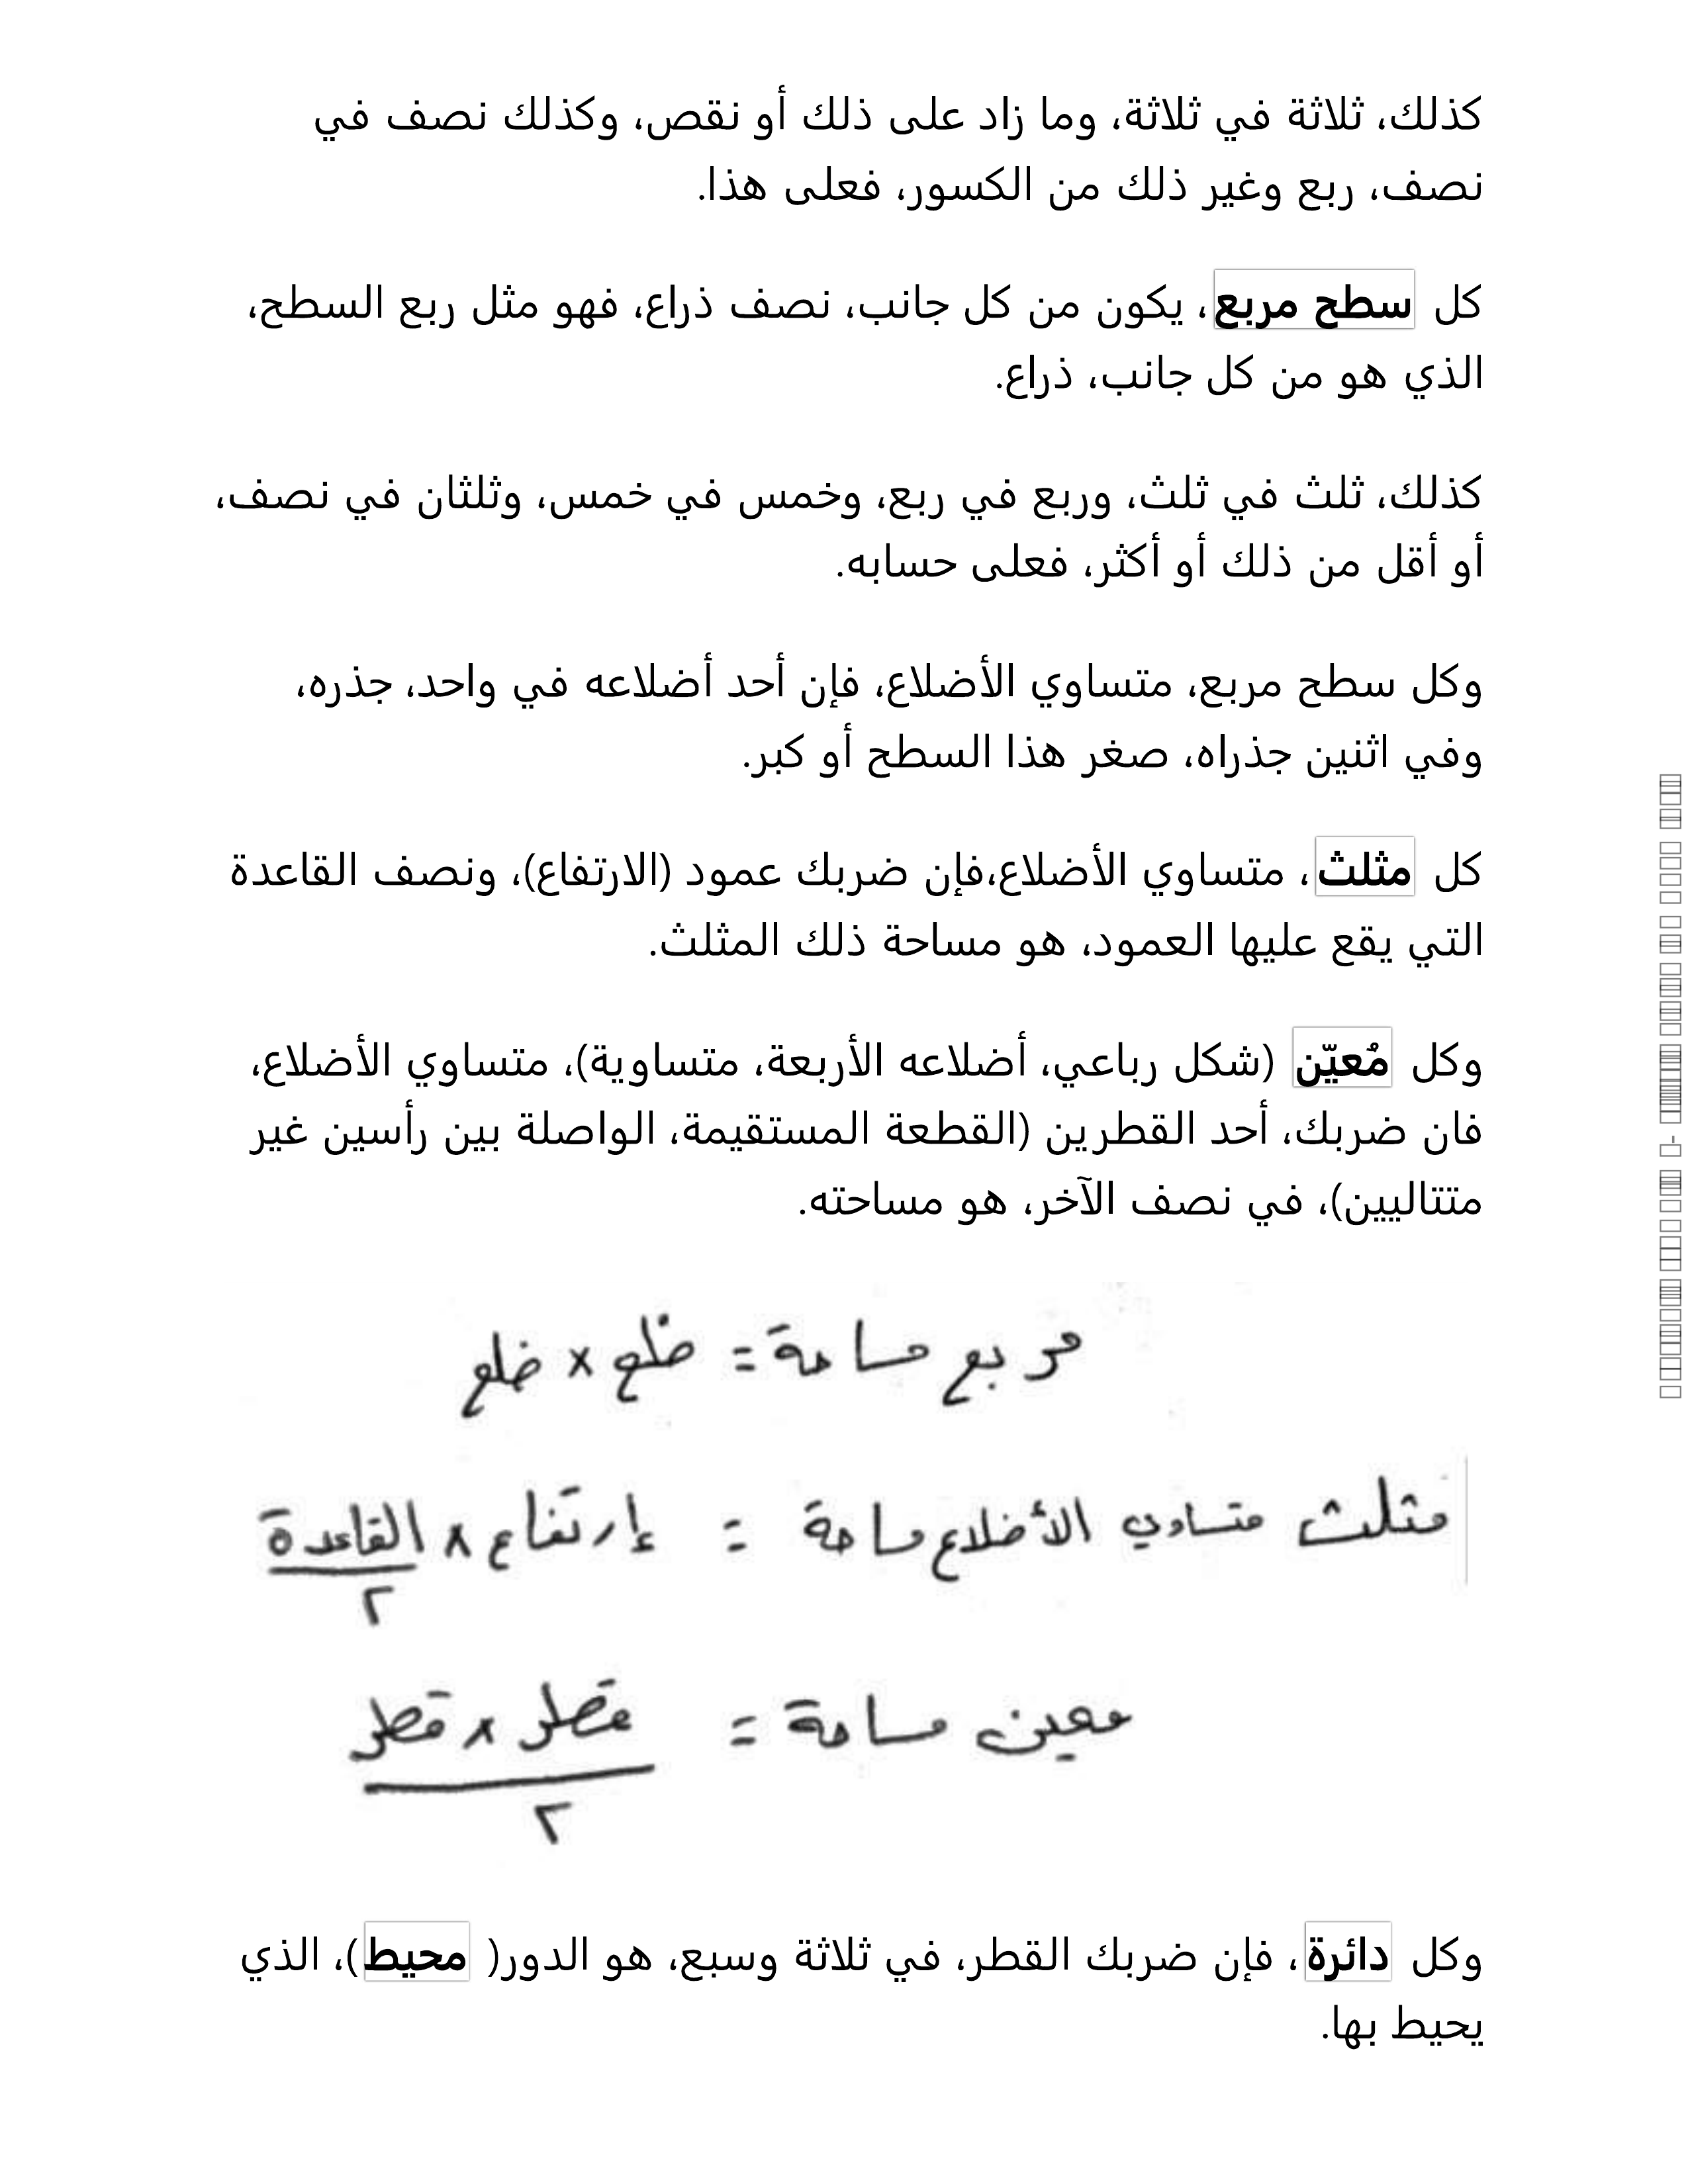 كذلك، ثلاثة في ثلاثة، وما زاد على ذلك أو نقص، وكذلك نصف في
نصف، ربع وغير ذلك من الكسور، فعلى هذا.
كل سطح مربع، يكون من كل جانب، نصف ذراع، فهو مثل ربع السطح،
الذي هو من كل جانب، ذراع.
كذلك، ثلث في ثلث، وربع في ربع، وخمس في خمس، وثلثان في نصف،
أو أقل من ذلك أو أكثر، فعلى حسابه.
وكل سطح مربع، متساوي الأضلاع، فإن أحد أضلاعه في واحد، جذره،
وفي اثنين جذراه، صغر هذا السطح أو كبر.
كل مثلث، متساوي الأضلاع،فإن ضربك عمود (الارتفاع)، ونصف القاعدة
التي يقع عليها العمود، هو مساحة ذلك المثلث.
وكل مُعيّن (شكل رباعي، أضلاعه الأربعة، متساوية)، متساوي الأضلاع،
فان ضربك، أحد القطرين (القطعة المستقيمة، الواصلة بين رأسين غير
متتاليين)، في نصف الآخر، هو مساحته.
مربع مساحة = ضلع × ضلع
مثلث متساوي الأضلاع مساحة = إرتفاع × القاعدة
٢
معين مساحة = قطر × قطر
٢
وكل دائرة، فإن ضربك القطر، في ثلاثة وسبع، هو الدور( محيط)، الذي
يحيط بها.